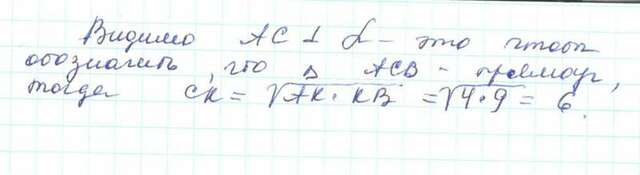 Видимо AC ⊥ α - это чтобы
обозначить, что Δ ACB - прямоуг,
тогда CK = √AK·KB = √4·9 = 6.